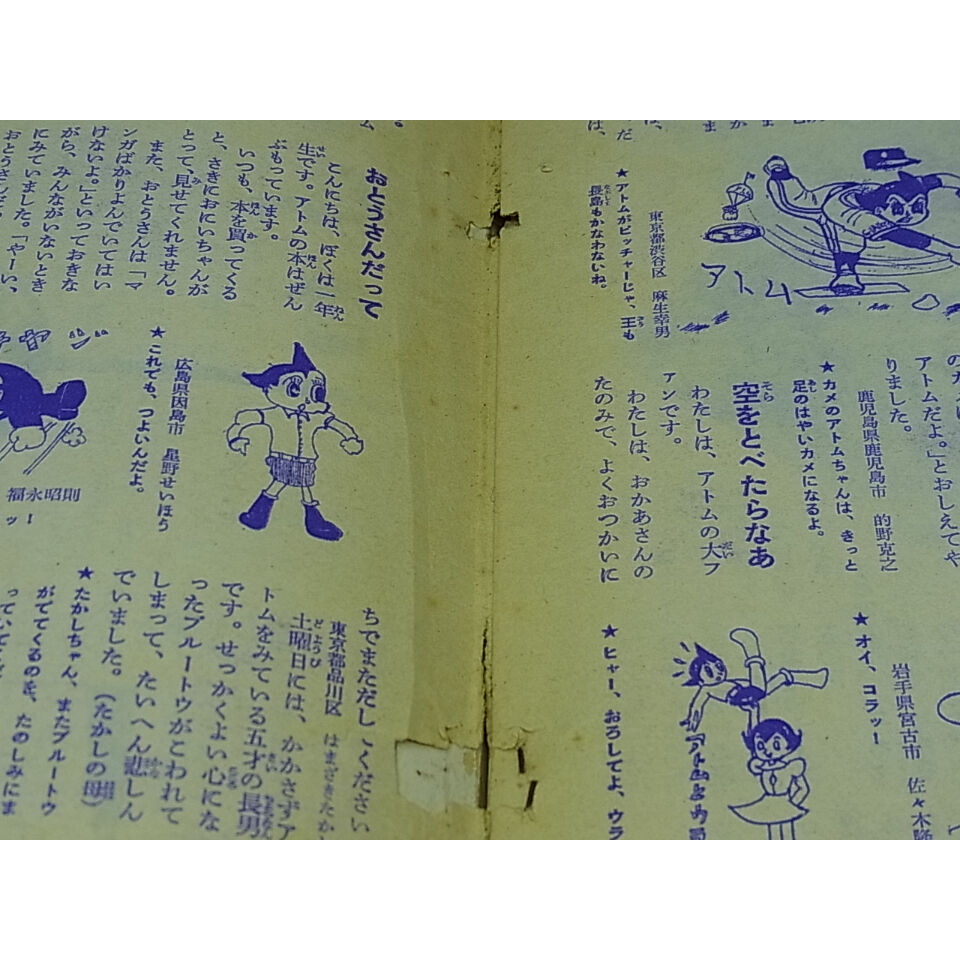 アトム
★アトムがピッチャーじゃ、王も
長島もかなわないね。
東京都渋谷区 麻生幸男
アトムだよ。」とおしえてや
りました。
鹿児島県鹿児島市 的野克之
★カメのアトムちゃんは、きっと
足のはやいカメになるよ。
空をとべたらなあ
わたしは、アトムの大フ
アンです。
わたしは、おかあさんの
たのみで、よくおつかいに
岩手県宮古市 佐々木
★オイ、コラッー
★ヒャー、おろしてよ、ウラ
おとうさんだって
こんにちは、ぼくは一年
生です。アトムの本はぜん
ぶもっています。
いつも、本を買ってくる
と、さきにおにいちゃんが
とって、見せてくれません。
また、おとうさんは「マ
ンガばかりよんでいてはい
けないよ。」といっておきな
がら、みんながいないとき
にみていました。「やーい、
広島県因島市 星野せいほう
★これでも、つよいんだよ。
福永昭則
ッー
ちでまただしてください
東京都品川区 はまざきたか
土曜日には、かかさずア
トムをみている五才の長男
です。せっかくよい心にな
ったプルートウがこわれて
しまって、たいへん悲しん
でいました。(たかしの母)
★たかしちゃん、またプルートウ
がでてくるのを、たのしみにま